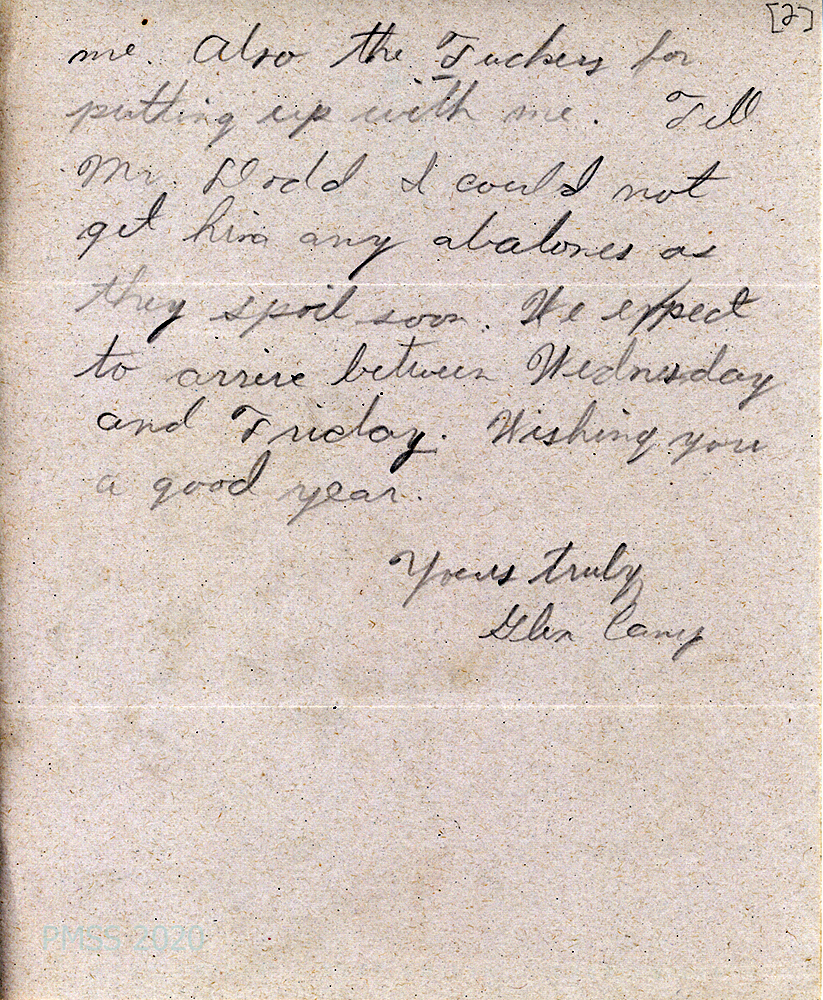 [2]
me. Also the Tuckers for
putting up with me. Tell
Mr. Dodd I could not
get him any abalones as
they spoil soon. We expect
to arrive between Wednesday
and Friday. Wishing you
a good year.
Yours truly
Glen
PMSS 2020